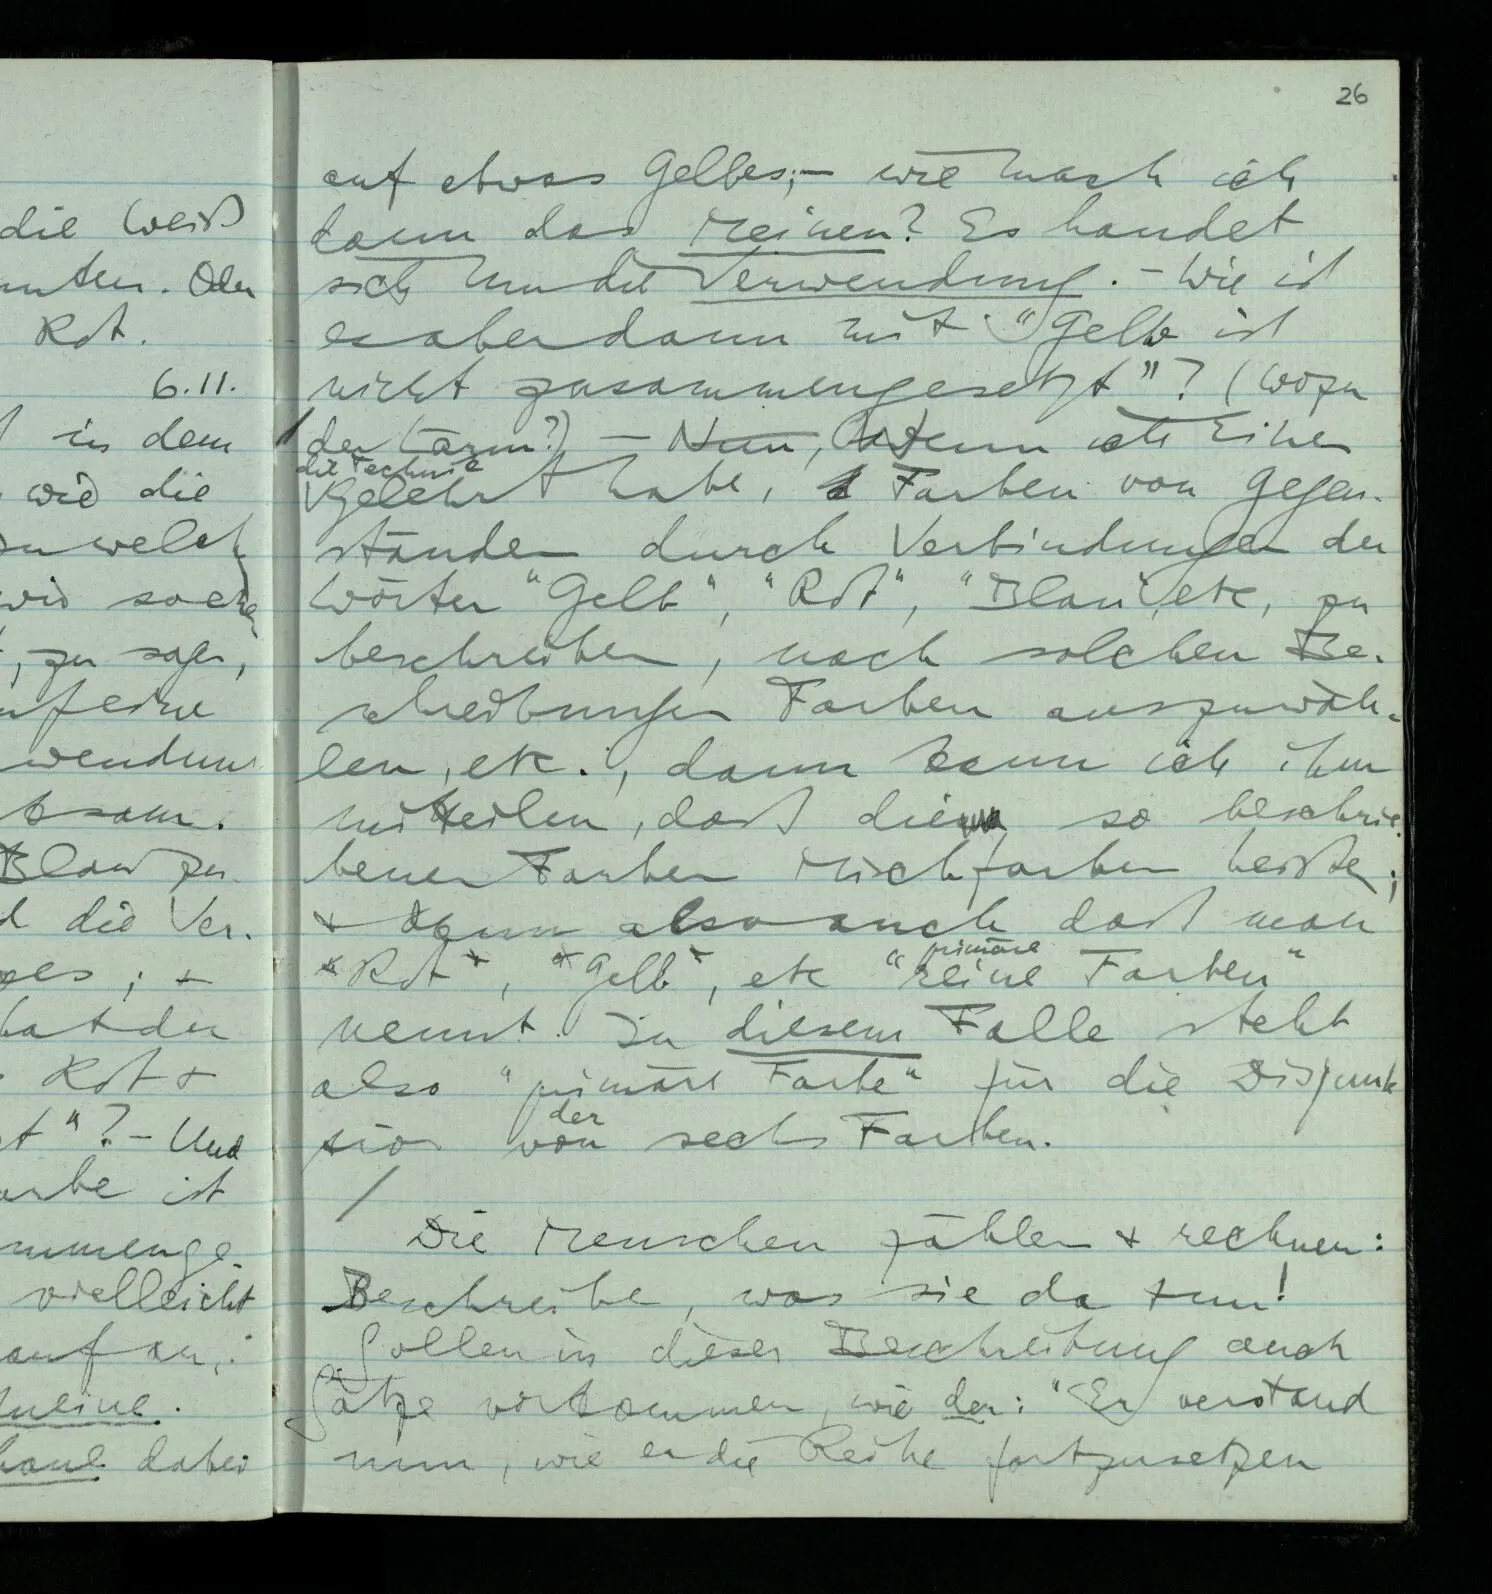 26
die Weiß
Oder
Rot.
6.11.
in dem
wie die
zu sagen,
Blau zu
d die Ver-
Rot +
t"? – Und
arbe ist
mmenge-
vielleicht
auf an;
meine.
dabei
auf etwas Gelbes; – wie mach ich
dann das Meinen? Es handet
sich um die Verwendung. – Wie ist
es aber dann mit "Gelb ist
nicht zusammengesetzt"? (Wozu
der Lärm?) – Nun, Wenn ich Einen
die Technik
gelehrt habe, Farben von Gegen-
ständen durch Verbindungen der
Wörter "Gelb", "Rot", "Blau", etc, zu
beschreiben, nach solchen Be-
schreibungen Farben auszuwäh-
len, etc., dann kann ich ihm
mitteilen, daß die so beschrie-
benen Farben Mischfarben heißen;
+ dann also auch daß man
"Rot", "Gelb", etc "reine primäre Farben"
nennt. In diesem Falle steht
also "primäre Farbe" für die Disjunk
tion von der sechs Farben.
/
Die Menschen zählen + rechnen:
Beschreibe, was sie da tun!
Sollen in dieser Beschreibung auch
Sätze vorkommen, wie der: "Er verstand
nun, wie er die Reihe fortzusetzen